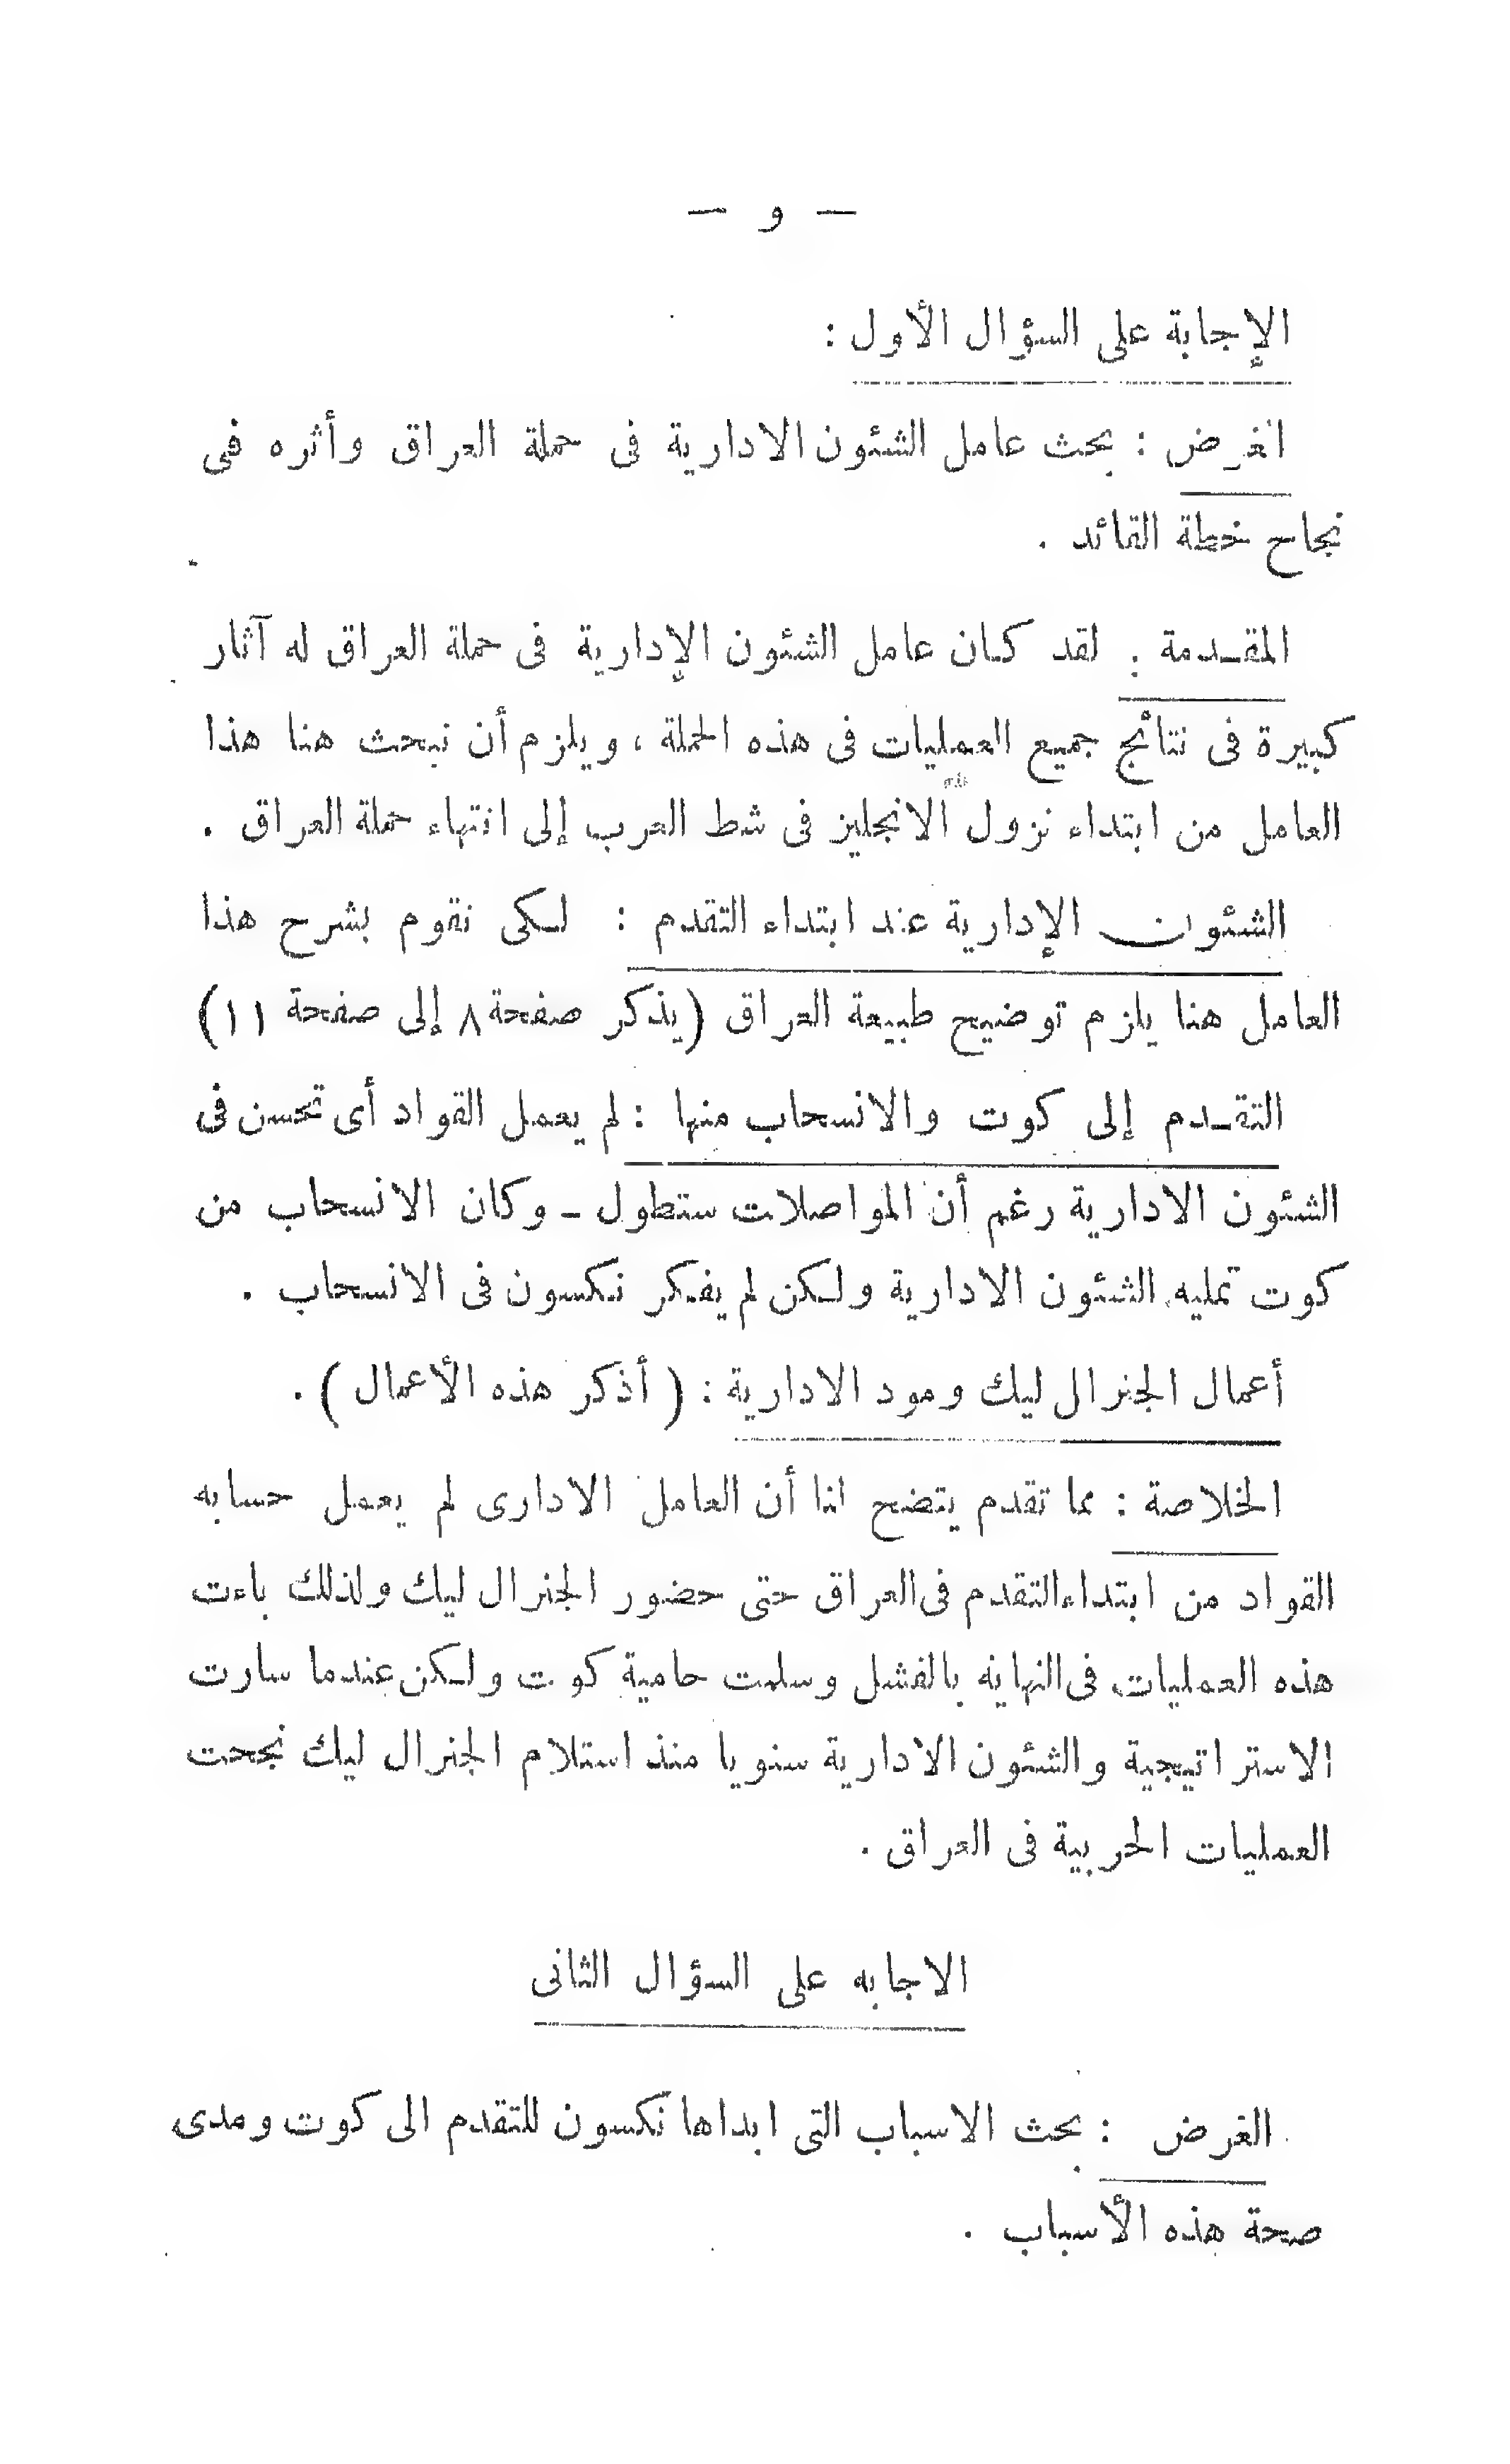 — و —
الإجابة على السؤال الأول :
الغرض : بحث عامل الشئون الادارية فى حملة العراق وأثره فى
نجاح خطة القائد .
المقـدمة : لقد كان عامل الشئون الإدارية فى حملة العراق له آثار
كبيرة فى نتائج جميع العمليات فى هذه الحملة ، ويلزم أن نبحث هنا هذا
العامل من ابتداء نزول الانجليز فى شط العرب إلى انتهاء حملة العراق .
الشئون الإدارية عند ابتداء التقدم : لكى نقوم بشرح هذا
العامل هنا يلزم توضيح طبيعة العراق (يذكر صفحة ٨ إلى صفحة ١١)
التقـدم إلى كوت والانسحاب منها : لم يعمل القواد أى تحسن فى
الشئون الادارية رغم أن المواصلات ستطول ــ وكان الانسحاب من
كوت تمليه الشئون الادارية ولكن لم يفكر نكسون فى الانسحاب .
أعمال الجنرال ليك ومود الادارية : ( أذكر هذه الأعمال ) .
الخلاصة : مما تقدم يتضح لنا أن العامل الادارى لم يعمل حسابه
القواد من ابتداء التقدم فى العراق حتى حضور الجنرال ليك ولذلك باءت
هذه العمليات فى النهايه بالفشل وسلمت حامية كوت ولكن عندما سارت
الاستراتيجية والشئون الادارية سنويا منذ استلام الجنرال ليك نجحت
العمليات الحربية فى العراق .
الاجابه على السؤال الثانى
الغرض : بحث الاسباب التى ابداها نكسون للتقدم الى كوت ومدى
صحة هذه الأسباب .